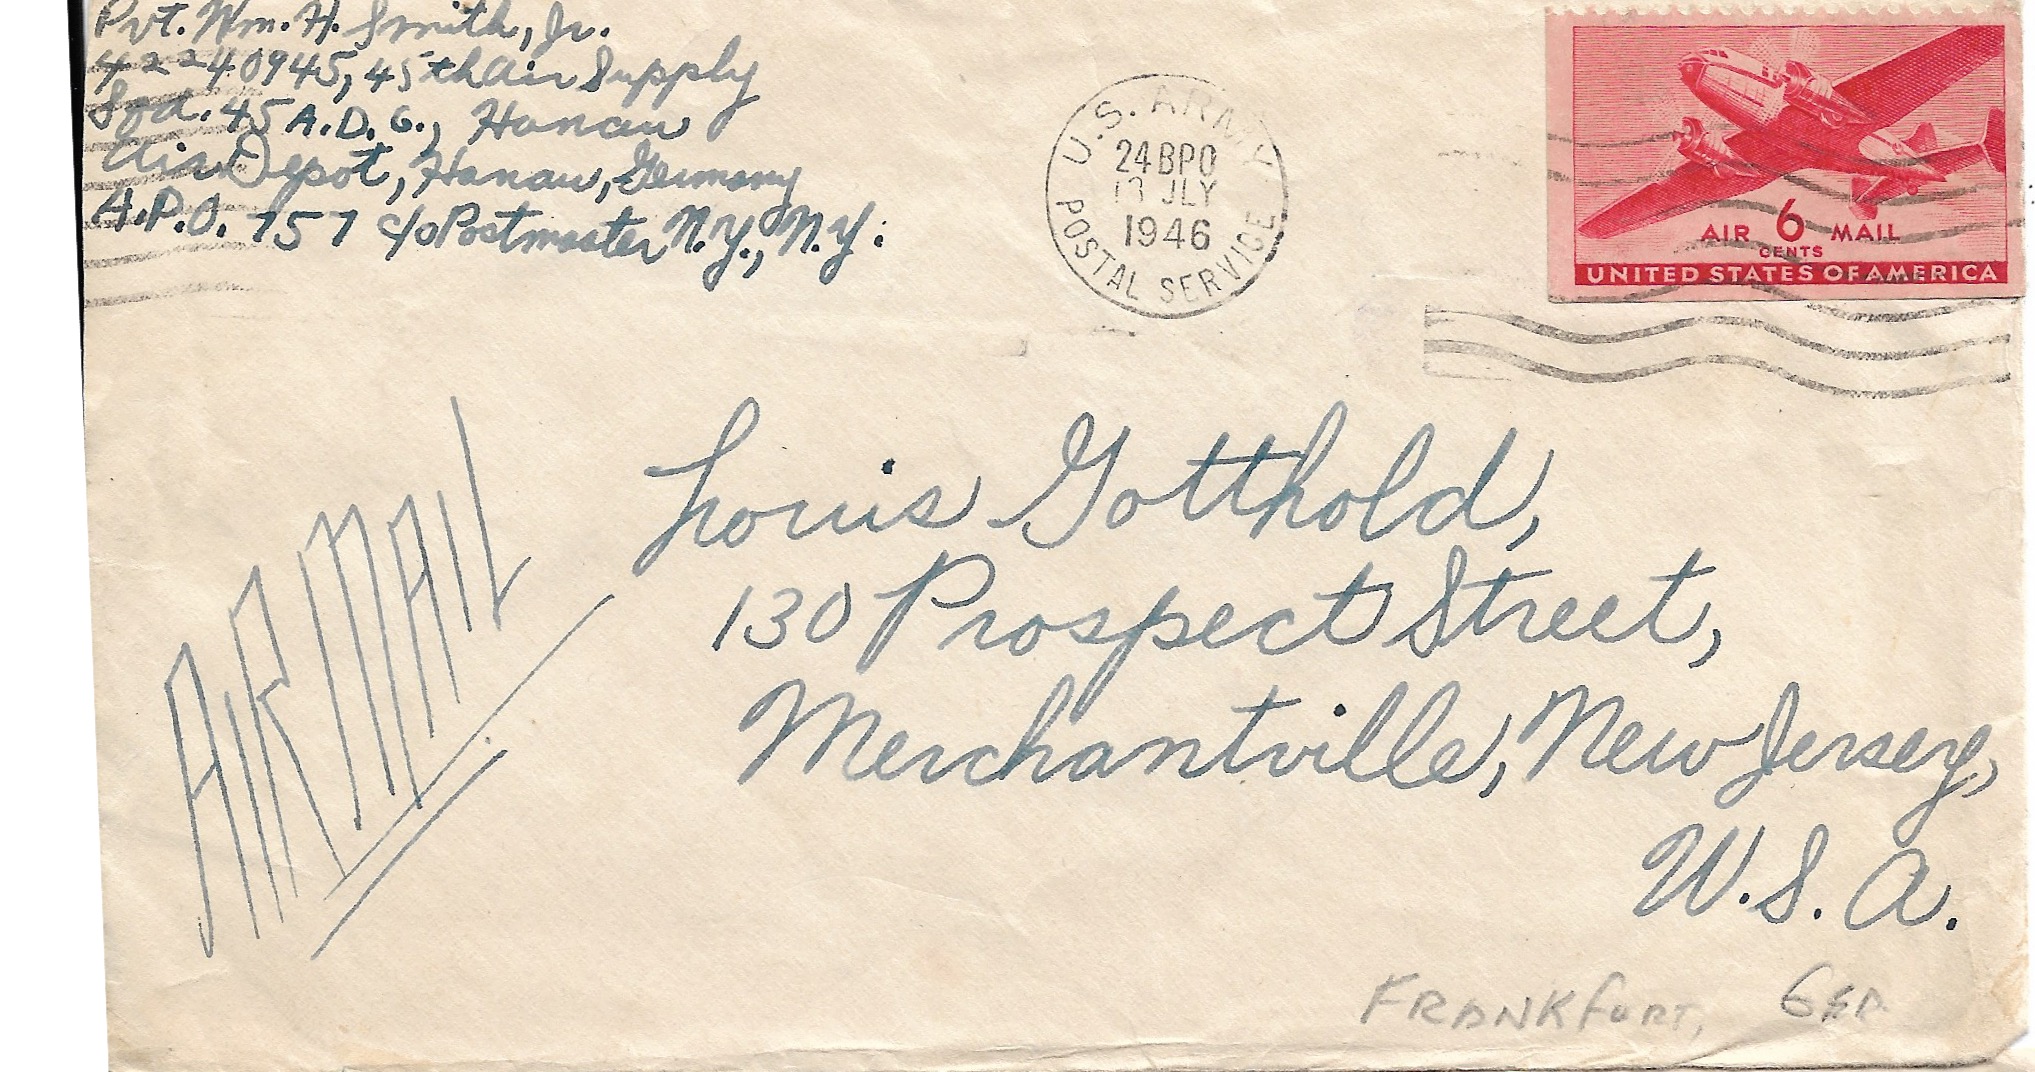 Pvt. Wm. H. Smith, Jr.
42240945, 45th Air Supply
Sqd. 45 A.D.G., Hanau
Air Depot, Hanau, Germany
A.P.O. 757 c/o Postmaster N.Y., N.Y.
U.S. ARMY
24 BPO
13 JLY
1946
POSTAL SERVICE
AIR 6 MAIL
CENTS
UNITED STATES OF AMERICA
AIR MAIL
Louis Gotthold,
130 Prospect Street,
Merchantville, New Jersey,
U.S.A.
FRANKfURT, GER.